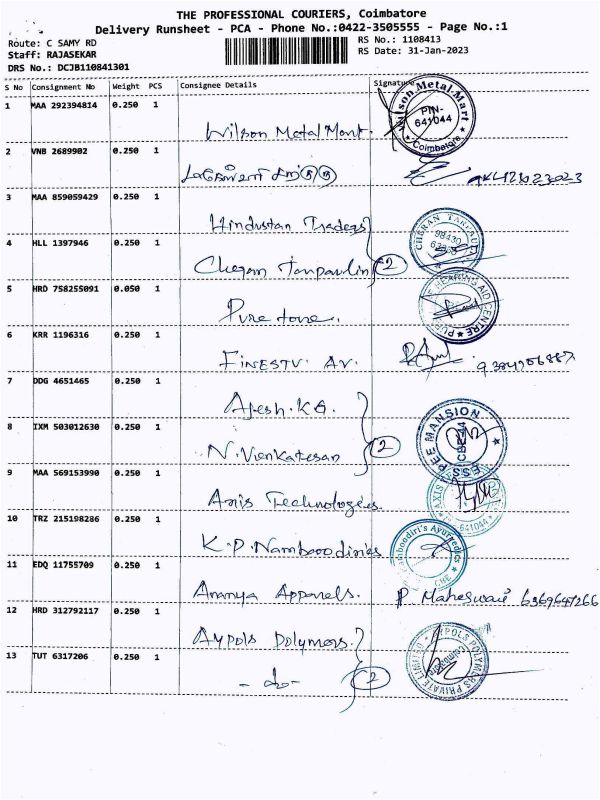 THE PROFESSIONAL COURIERS, Coimbatore
Delivery Runsheet - PCA - Phone No.:0422-3505555 - Page No.:1
Route: C SAMY RD
RS No.: 1108413
Staff: RAJASEKAR
RS Date: 31-Jan-2023
DRS No.: DCJB110841301
S No Consignment No Weight PCS Consignee Details Signature
1 MAA 292394814 0.250 1 Wilson Metal Mart. Wilson Metal Mart PIN-641044 Coimbatore
2 VNB 2689902 0.250 1
3 MAA 859059429 0.250 1 Hindustan Traders
4 HLL 1397946 0.250 1 Cheran Tarpaulin 2 CHERAN
5 HRD 758255091 0.050 1 Pure tone. HEARING AID CENTRE
6 KRR 1196316 0.250 1 FINESTV. AV.
7 DDG 4651465 0.250 1 Ajesh. K G.
8 IXM 503012630 0.250 1 N. Venkatesan 2 ESS PEE MANSION
9 MAA 569153990 0.250 1 Axis Technologies. AXIS 641044
10 TRZ 215198286 0.250 1 K. P. Namboodiries Namboodiri's Ayurvedics CBE
11 EDQ 11755709 0.250 1 Ananya Apparels. P Maheswari 6369647266
12 HRD 312792117 0.250 1 Aypols Polymers.
13 TUT 6317206 0.250 1 - do - 2 AYPOLS POLYMERS PRIVATE LIMITED Coimbatore